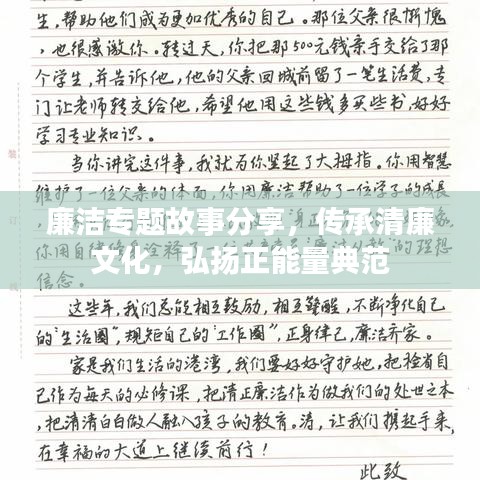 生,帮助他们成为更加优秀的自己。那位父亲很惭愧
,也很感激你。转过天,你把那500元钱亲手交给了那
个学生,并告诉他,他的父亲回城前留了一笔生活费,专
门让老师转交给他,希望他用这些钱多买些书,好好
学习专业知识。
当你讲完这件事,我就为你竖起了大拇指。你用智慧
维护了一位父亲的体面,你用廉洁帮助了一位学子的成长,
廉洁专题故事分享,传承清廉
文化,弘扬正能量典范
你用自
的理想
信念。
这些年,我们总能相互鼓励,相互警醒,不断净化自己
的"生活圈",规矩自己的"工作圈",正身律己,廉洁齐家。
家是我们生活的港湾,我们要好好守护她,把检省自
己作为每天的必修课,把清正廉洁作为做我们的处世之本
,把清清白白做人融入孩子的教育。清,让我们携起手来,
在幸福的大道上继续前行!
此致
装
订
线